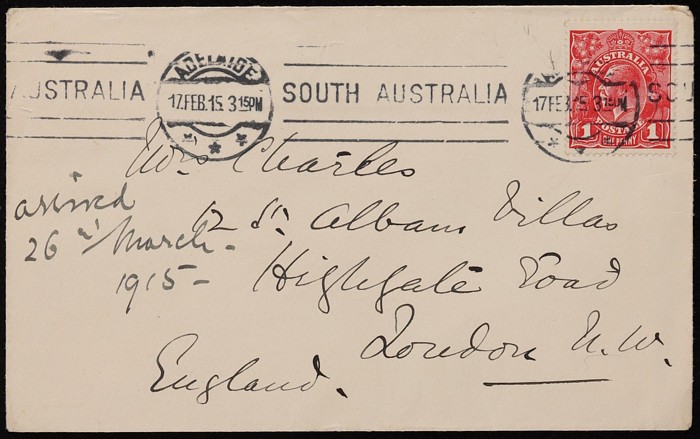 AUSTRALIA
ADELAIDE
17.FEB.15. 3 15PM
SOUTH AUSTRALIA
17.FEB.15. 3 15PM
SOU
AUSTRALIA
POSTAGE
1 1
ONE PENNY
Mrs Charles
12 St. Albans Villas
Highgate Road
London N.W.
England.
arrived
26th March -
1915 -